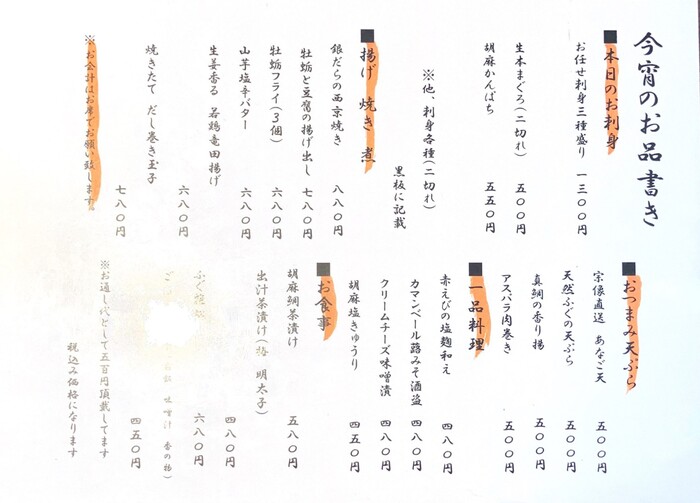 今宵のお品書き
■本日のお刺身
お任せ刺身三種盛り 一三〇〇円
生本まぐろ(二切れ) 五〇〇円
胡麻かんぱち 五五〇円
※他、刺身各種(二切れ)
黒板に記載
■揚げ 焼き 煮
銀だらの西京焼き 八八〇円
牡蛎と豆腐の揚げ出し 七八〇円
牡蛎フライ(3個) 六八〇円
山芋塩辛バター 六八〇円
生姜香る 若鶏竜田揚げ 六八〇円
焼きたて だし巻き玉子 七八〇円
※お会計はお席でお願い致します。
■おつまみ天ぷら
宗像直送 あなご天 五〇〇円
天然ふぐの天ぷら 五〇〇円
真鯛の香り揚 五〇〇円
アスパラ肉巻き 五〇〇円
■一品料理
赤えびの塩麹和え 四八〇円
カマンベール蕗みそ酒盗 四八〇円
クリームチーズ味噌漬 四八〇円
胡麻塩きゅうり 四五〇円
■お食事
胡麻鯛茶漬け 五八〇円
出汁茶漬け(梅 明太子) 四八〇円
ふぐ 六八〇円
味噌汁 香の物) 四五〇円
※お通し代として五百円頂戴してます
税込み価格になります